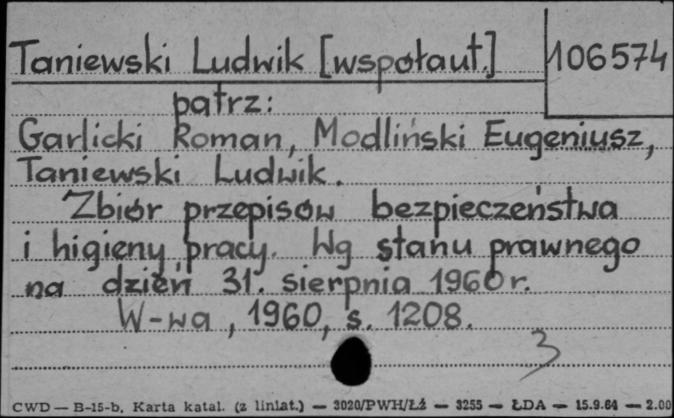 Taniewski Ludwik [wspołaut.] 106574
patrz:
Garlicki Roman, Modliński Eugeniusz,
Taniewski Ludwik.
Zbiór przepisów bezpieczeństwa
i higieny pracy. Wg stanu prawnego
na dzień 31. sierpnia 1960 r.
W-wa, 1960, s. 1208.
3
CWD — B-15-b, Karta katal. (z liniat.) — 3020/PWH/Łź — 3255 — ŁDA — 15.9.64 — 2.00